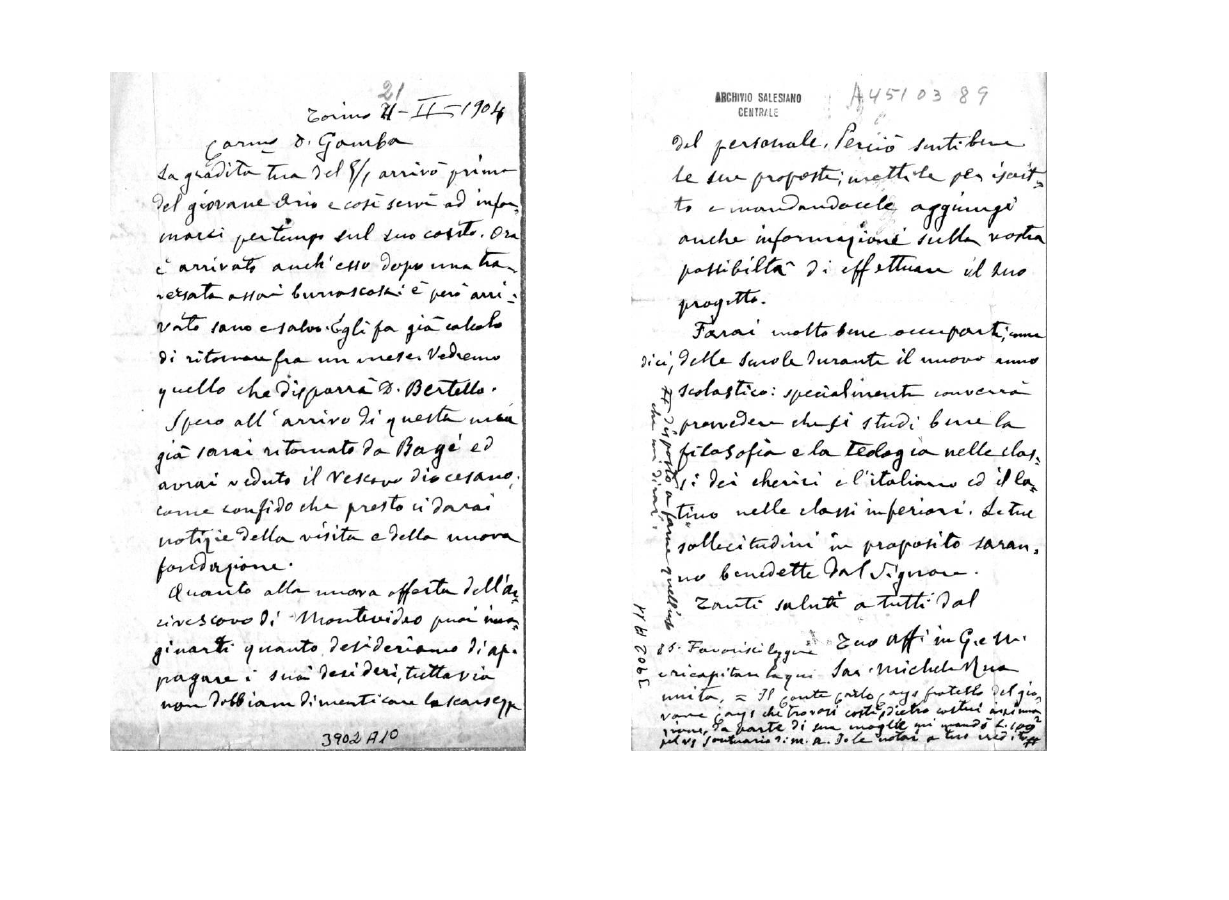 21
Torino 21-II-1904
Carmo D. Gamba
La gradita tua del 8/1 arrivò prima
del giovane Orio e così servì ad infor-
marci per tempo sul suo conto. Ora
è arrivato anch'esso dopo una tra-
versata assai burrascosa: è però arri-
vato sano e salvo. Egli fa già calcolo
di ritornare fra un mese. Vedremo
quello che disporrà D. Bertello.
Spero all'arrivo di questa mia
già sarai ritornato da Bagé ed
avrai veduto il Vescovo diocesano;
come confido che presto ci darai
notizie della visita e della nuova
fondazione.
Quanto alla nuova offerta dell'Ar-
civescovo di Montevideo puoi imma-
ginarti quanto desideriamo di ap-
pagare i suoi desideri, tuttavia
non dobbiam dimenticare la scarsezza
3902 A10
ARCHIVIO SALESIANO
CENTRALE
A451 03 89
del personale. Perciò senti bene
le sue proposte; mettile per iscrit-
to e mandandocele aggiungi
anche informazioni sulla vostra
possibiltà di effettuare il suo
progetto.
Farai molto bene occuparti, come
dici, delle scuole durante il nuovo anno
scolastico: specialmente converrà
provvedere che si studi bene la
filosofia e la teologia nelle clas-
si dei chierici e l'italiano ed il la-
tino nelle classi inferiori. Le tue
sollecitudini in proposito saran-
no benedette dal Signore.
Tanti saluti a tutti dal
Tuo aff in G. e M.
Sac. Michele Rua
PS. Favorisci leggere
e ricapitar la qui
unita. = Il conte Carlo Cays fratello del gio-
vane Cays che trovasi costì, dietro
da parte di sua moglie mi mandò L.
pel Santuario di M. A. Io le notai a tuo credito #
# disposto a farne quell'uso
che mi dirai.
3902 A11